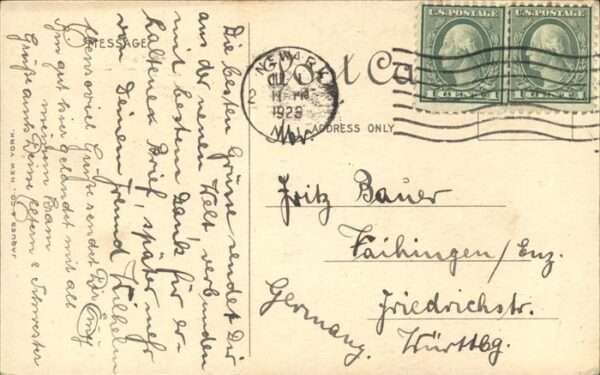 MESSAGE
Die besten Grüße sendet Dir
aus der neuen Welt, verbunden
mit bestem Dank für er-
haltenen Brief, später mehr
von Deinem Freund Wilhelm
Grüße sendet Dir
Bin gut hier gelandet mit all
meinem
Grüße auch Deine Eltern & Schwester
Post Ca
ADDRESS ONLY
NEWARK
2
11 PM
1923
N.J.
U.S. POSTAGE
1 CENT 1
U.S. POSTAGE
1 CENT 1
Fritz Bauer
Vaihingen/Enz.
Friedrichstr.
Württbg.
Germany.